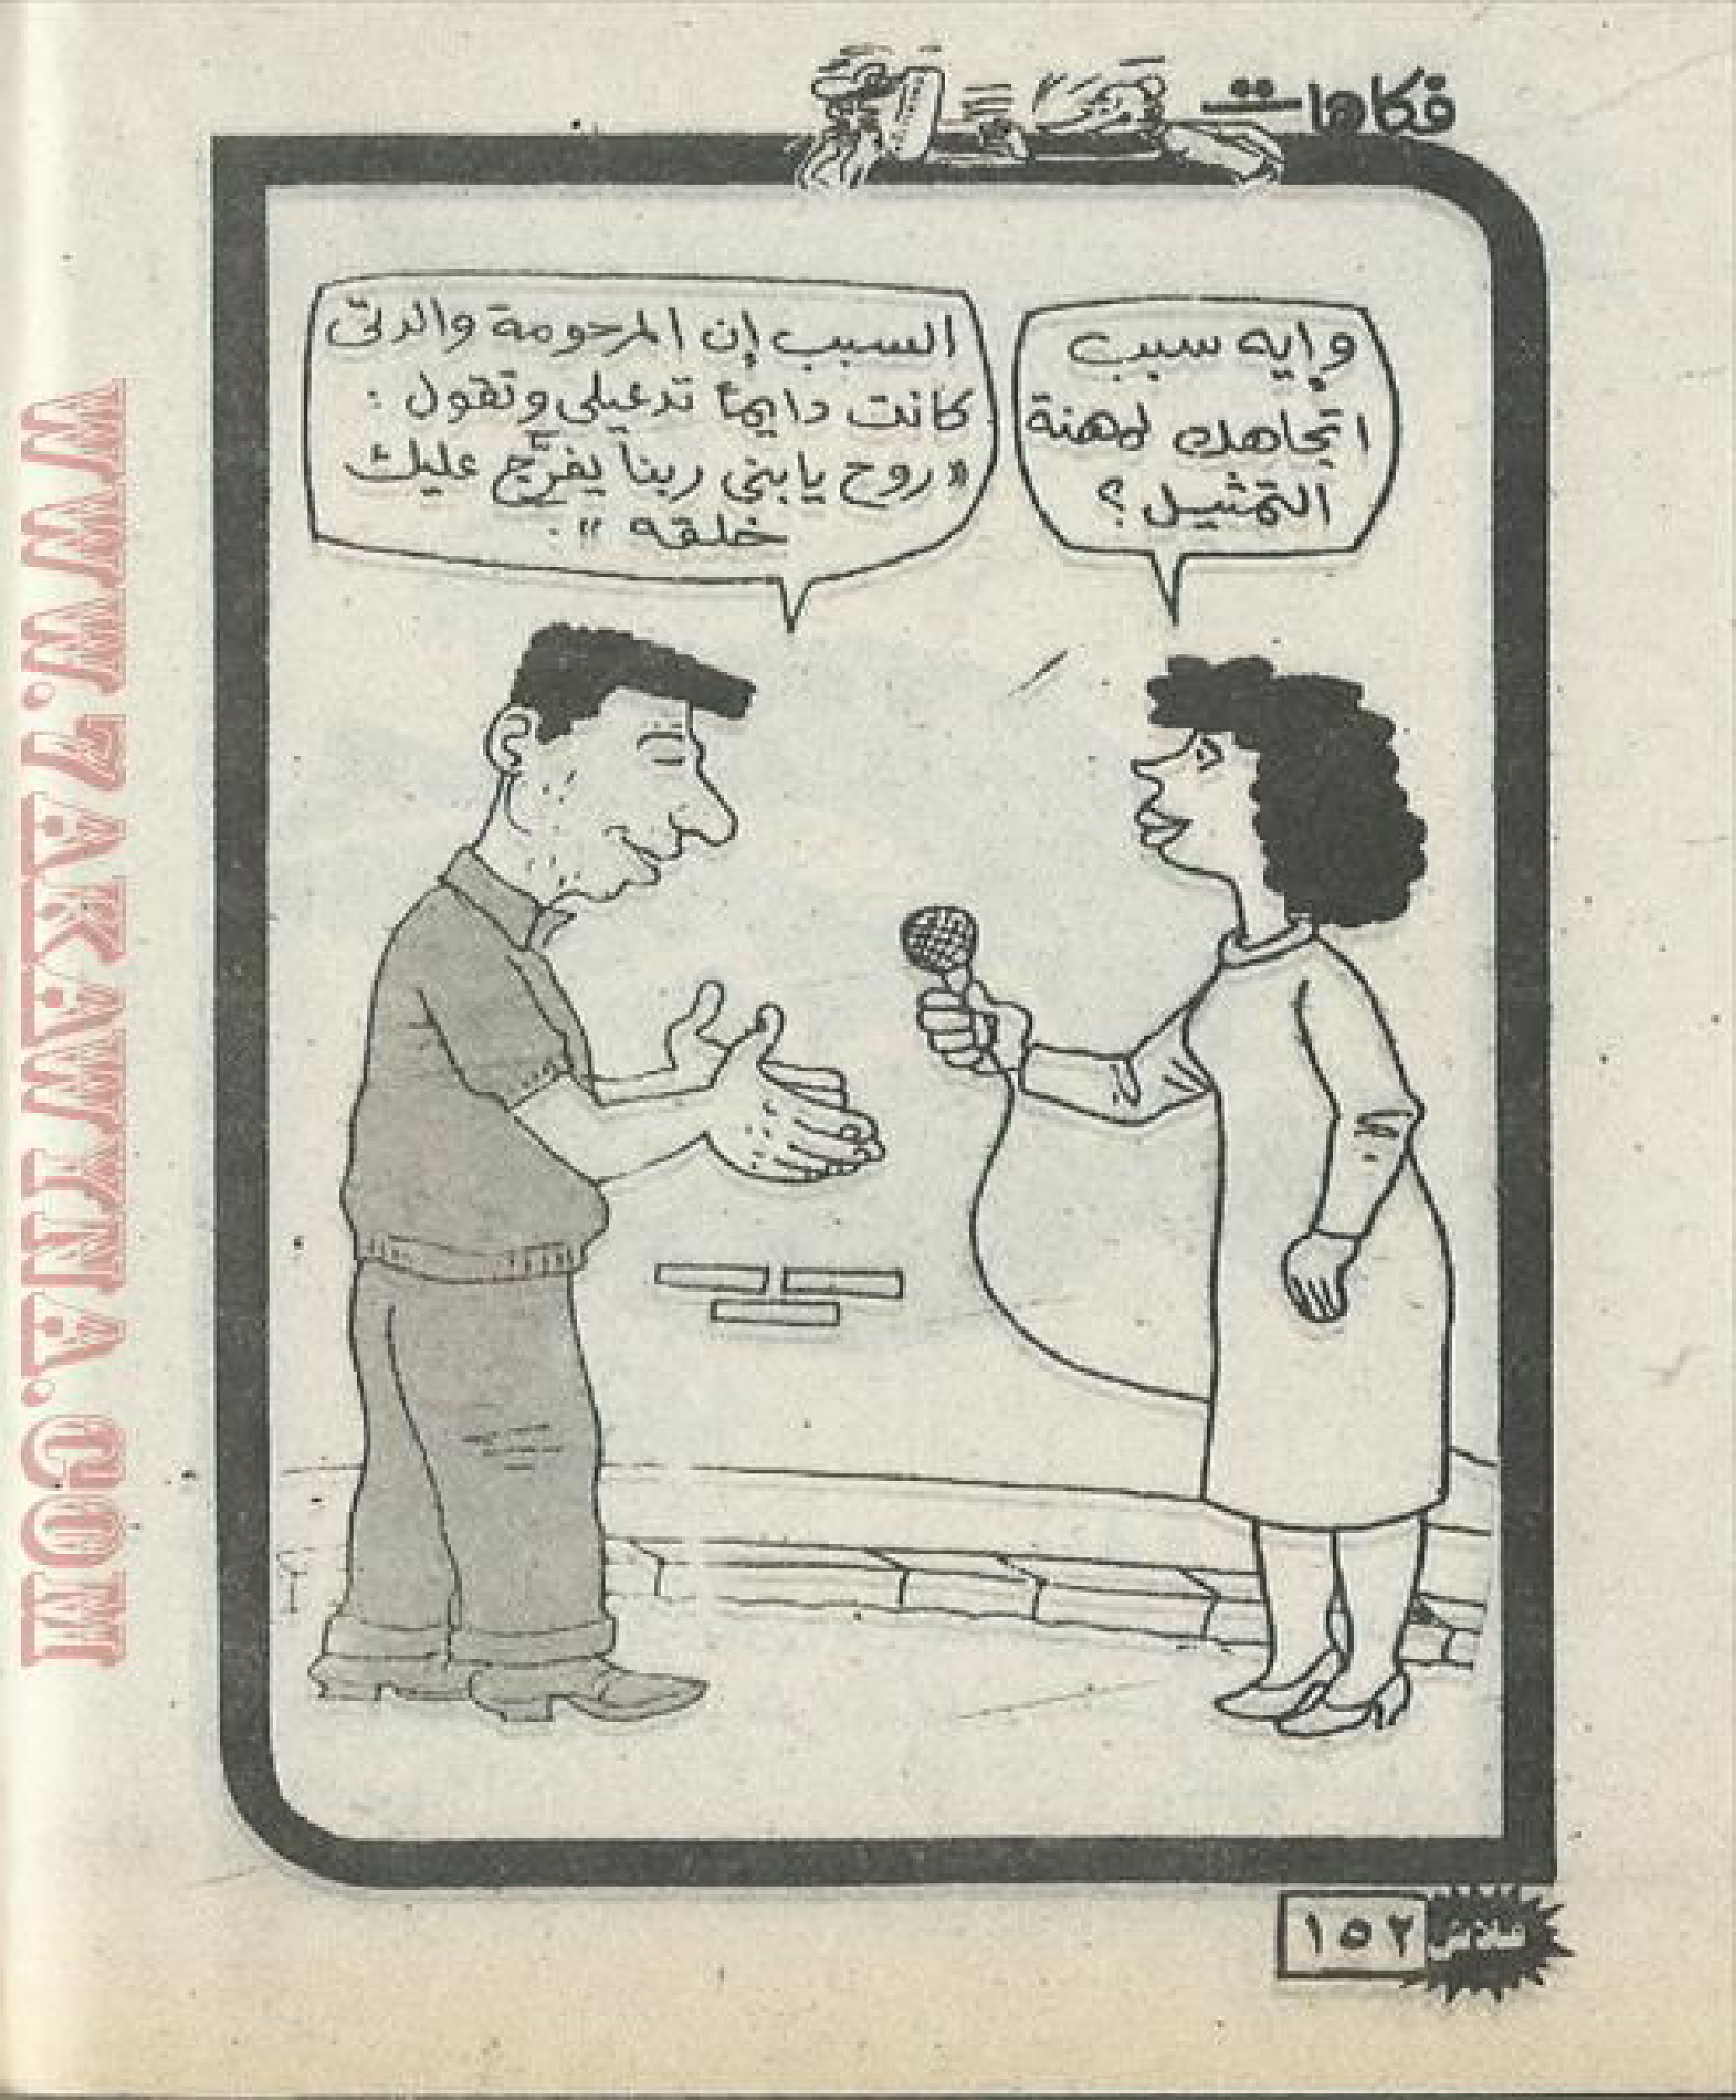 فكاهات
وإيه سبب
اتجاهك لمهنة
التمثيل؟
السبب إن المرحومة والدتى
كانت دايماً تدعيلى وتقول :
« روح يابنى ربنا يفرَّج عليك
خلقه » .
فلاش ١٥٢
WWW.7AKAWTINA.COM